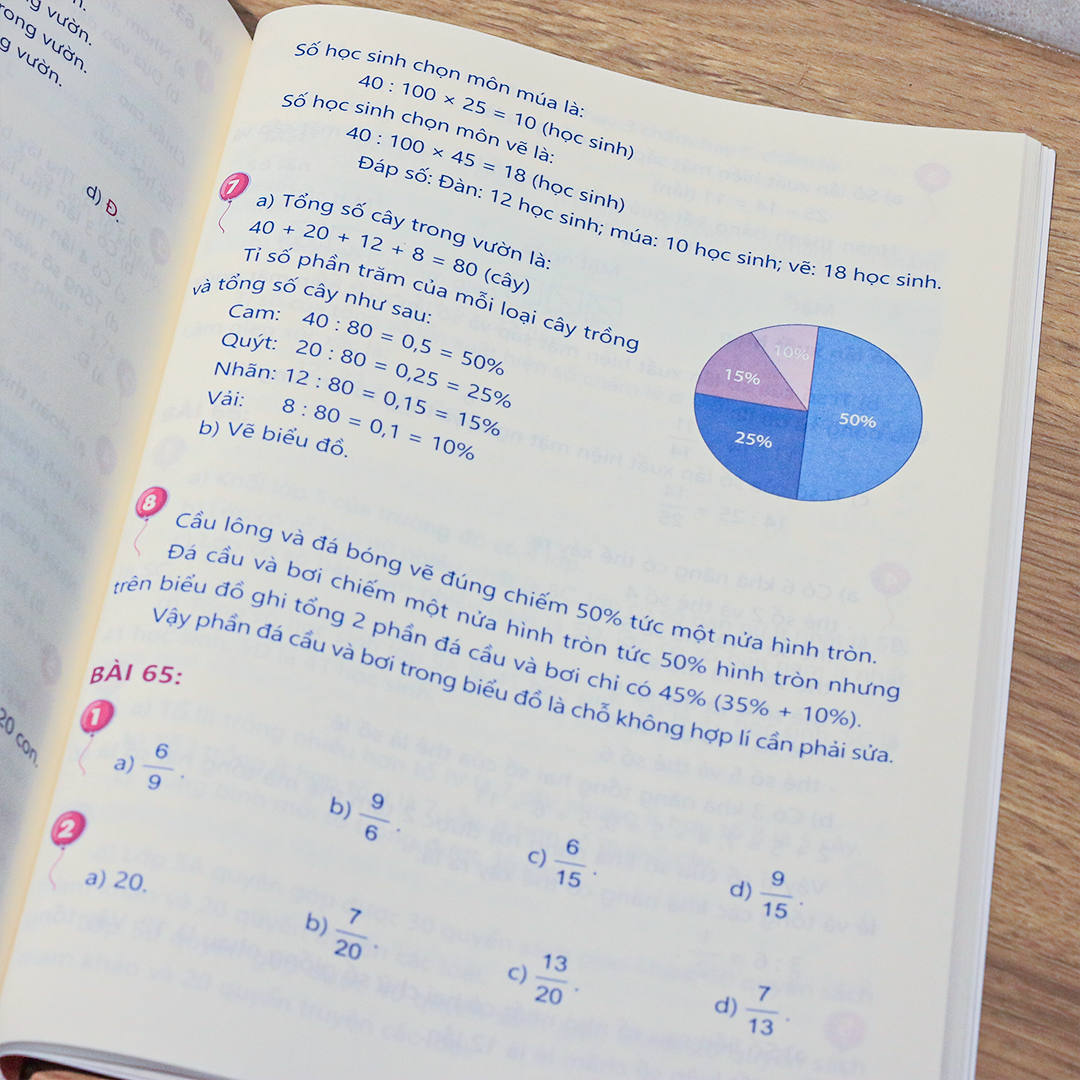 g vườn.
rong vườn.
g vườn.
d) Đ.
20 con.
Số học sinh chọn môn múa là:
40 : 100 × 25 = 10 (học sinh)
Số học sinh chọn môn vẽ là:
40 : 100 × 45 = 18 (học sinh)
Đáp số: Đàn: 12 học sinh; múa: 10 học sinh; vẽ: 18 học sinh.
7
a) Tổng số cây trong vườn là:
40 + 20 + 12 + 8 = 80 (cây)
Tỉ số phần trăm của mỗi loại cây trồng
và tổng số cây như sau:
Cam: 40 : 80 = 0,5 = 50%
Quýt: 20 : 80 = 0,25 = 25%
Nhãn: 12 : 80 = 0,15 = 15%
Vải: 8 : 80 = 0,1 = 10%
b) Vẽ biểu đồ.
10%
15%
25%
50%
8
Cầu lông và đá bóng vẽ đúng chiếm 50% tức một nửa hình tròn.
Đá cầu và bơi chiếm một nửa hình tròn tức 50% hình tròn nhưng
trên biểu đồ ghi tổng 2 phần đá cầu và bơi chỉ có 45% (35% + 10%).
Vậy phần đá cầu và bơi trong biểu đồ là chỗ không hợp lí cần phải sửa.
BÀI 65:
1
a) 6/9. b) 9/6. c) 6/15. d) 9/15.
2
a) 20. b) 7/20. c) 13/20. d) 7/13.